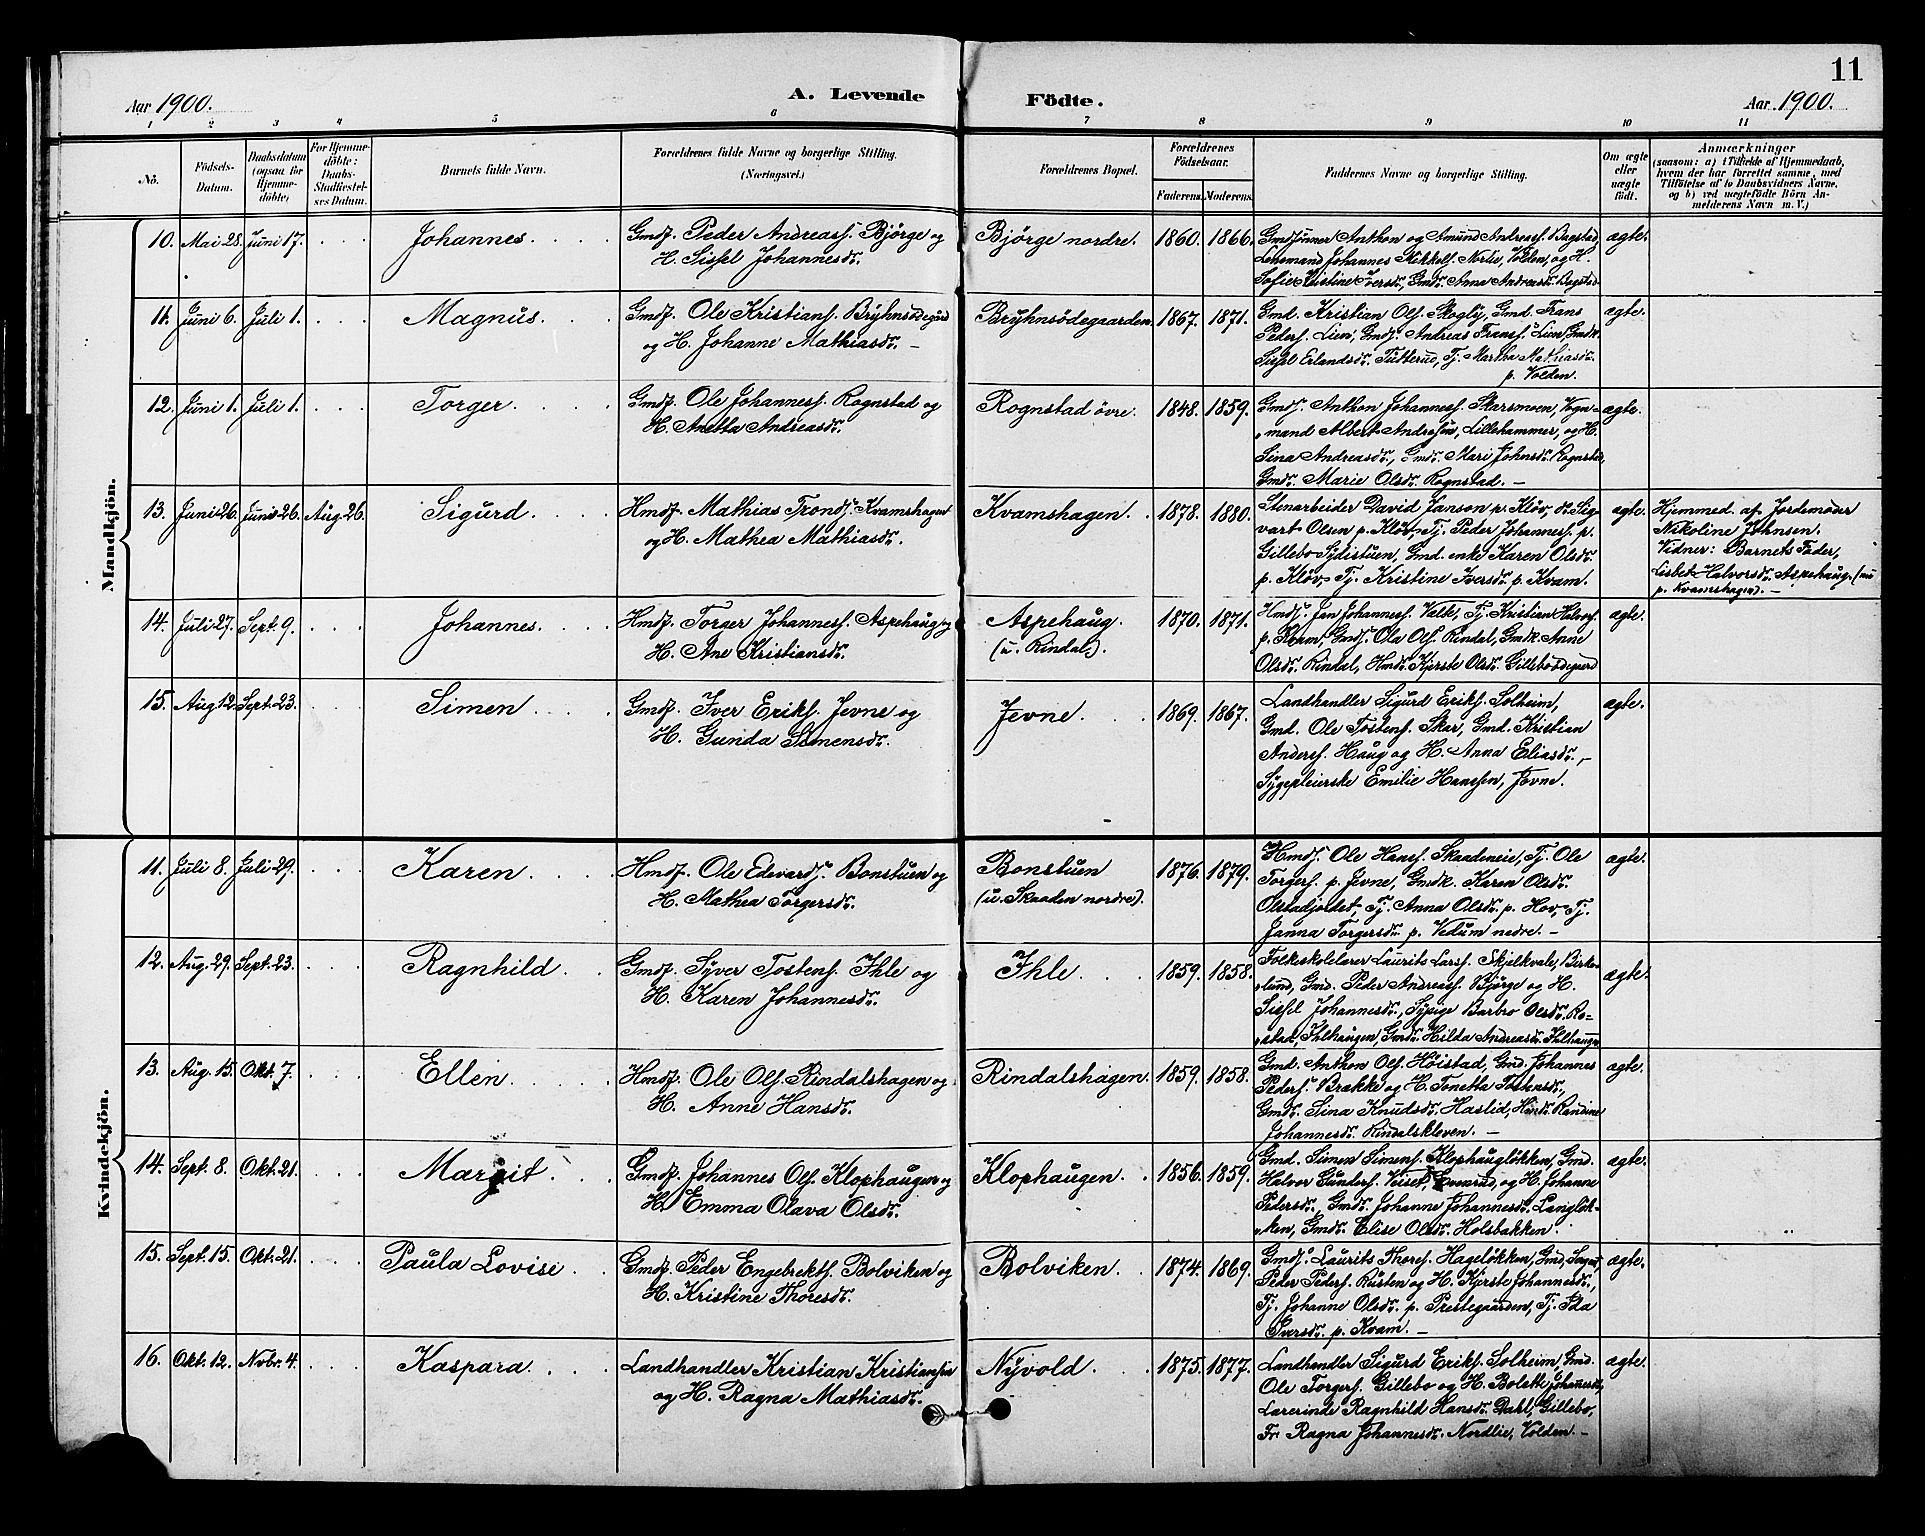 11
Aar 1900.
A. Levende Födte.
Aar 1900.
1 2 3 4 5 6 7 8 9 10 11
No.
Födsels-
Datum.
Daabsdatum
(ogsaa for
Hjemme-
döbte)
For Hjemme-
döbte:
Daabs-
Stadfæstel-
ses Datum.
Barnets fulde Navn.
Forældrenes fulde Navne og borgerlige Stilling.
(Næringsvei.)
Forældrenes Bopæl.
Forældrenes
Födselsaar.
Faderens. Moderens.
Faddernes Navne og borgerlige Stilling.
Om ægte
eller
uægte
födt.
Anmærkninger
(saasom: a) i Tilfælde af Hjemmedaab,
hvem der har forrettet samme, med
Tilföielse af to Daabsvidners Navne,
og b) ved uægtefödte Börn An-
melderens Navn m. V.)
Mandkjön.
10. Mai 28. Juni 17. Johannes.
Gmdf. Peder Andreass. Bjørge og
H. Sissel Johannesdr.
Bjørge nordre. 1860. 1866.
Gmdsønner Anthon og Amund Andreass. Bagstad,
Lensmand Johannes Mikkels. Nordlie, Volden, og H.
Sofie Kristine Iversdr., Gmdr. Anna Andreasdr. Bagstad
ægte.
11. Juni 6. Juli 1. Magnus.
Gmdf. Ole Kristians. Bryhnsødegård
og H. Johanne Mathiasdr. –
Bryhnsödegaarden 1867. 1871.
Gmd. Kristian Ols. Skogly, Gmd. Frans
Peders. Lien, Gmdf. Andreas Franss. Lien, Gmdk.
Sissel Erlandsdr. Tutterud, Tj. Martha Mathiasdr.
p. Volden.
ægte.
12. Juni 1. Juli 1. Torger.
Gmdf. Ole Johanness. Rognstad og
H. Anetta Andreasdr.
Rognstad övre. 1848. 1859.
Gmdf. Anthon Johanness. Skarsmoen, Vogn-
mand Albert Andresen, Lillehammer, og H.
Sina Andreasdr., Gmdr. Mari Johnsdr. Rognstad,
Gmdr. Marie Olsdr. Rognstad. –
ægte.
13. Juni 26. Juni 26. Aug. 26. Sigurd.
Hmdf. Mathias Tronds. Kvamshagen
og H. Mathea Mathiasdr.
Kvamshagen. 1878. 1880.
Stenarbeider David Janson p. Kløv, Sig-
vart Olsen p. Kløv, Tj. Peder Johanness. p.
Gillebo Sydistuen, Gmd.enke Karen Olsdr.
p. Kløv, Tj. Kristine Iversdr. p. Kvam.
ægte.
Hjemmed. af Jordemoder
Nikoline Johnsen.
Vidner: Barnets Fader,
Lisbet Halvorsdr. Aspehaug. (nu
p. Kvamshagen). –
14. Juli 27. Sept. 9. Johannes.
Hmdf. Torger Johanness. Aspehaug og
H. Ane Kristiansdr.
Aspehaug.
(u. Rindal.)
1870. 1871.
Hmdf. Jan Johanness. Valk, Tj. Kristian Halvors.
p. Gmdf. Ola Ols. Rindal, Gmdk. Anne
Olsdr. Rindal, Hmdr. Kjerste Olsdr. Gillebødegaard
ægte.
15. Aug. 12. Sept. 23. Simen.
Gmdf. Iver Eriks. Jevne og
H. Gunda Simensdr.
Jevne. 1869. 1867.
Landhandler Sigurd Eriks. Solheim,
Gmd. Ole Tostens. Skar, Gmd. Kristian
Anders. Haug og H. Anna Eliasdr. –
Sygepleierske Emilie Hanssen, Jevne.
ægte.
Kvindekjön.
11. Juli 8. Juli 29. Karen.
Hmdf. Ole Edvards. Bonstuen og
H. Mathea Torgersdr.
Bonstuen
(u. Skaaden nordre).
1876. 1879.
Hmdf. Ole Hanss. Skaadeneie, Tj. Ole
Torgers. p. Jevne, Gmdk. Karen Olsdr.
Olstadjordet, Tj. Anna Olsdr. p. Hov, Tj.
Janna Torgersdr. p. Vedum nedre. –
ægte.
12. Aug. 29. Sept. 23. Ragnhild.
Gmdf. Syver Tostens. Ihle og
H. Karen Johannesdr.
Ihle. 1859. 1858.
Folkeskolelærer Laurits Larss. Skjelkvale, Birke-
lund, Gmd. Peder Andreass. Bjørge og H.
Sissel Johannesdr., Sypige Barbro Olsdr. Ro-
stad, Ihlhaugen, Gmdr. Hilda Andreasdr. Ihlhaugen
ægte.
13. Aug. 15. Okt. 7. Ellen.
Hmdf. Ole Ols. Rindalshagen og
H. Anne Hansdr.
Rindalshagen. 1859. 1858.
Gmd. Anthon Ols. Höistad, Gmd. Johannes
Peders. Brække og H. Tonetta Tostensdr.,
Gmdr. Sina Knudsdr. Haslid, Hmdr. Randine
Johannesdr. Rindalskleven. –
ægte.
14. Sept. 8. Okt. 21. Margit.
Gmdf. Johannes Ols. Klophaugen og
H. Emma Olava Olsdr.
Klophaugen. 1856. 1859.
Gmd. Simen Simens. Klophaugløkken, Gmd.
Halvor Gunders. og H. Johanne
Pedersdr., Gmdr. Johanne Johannesdr. Langløk-
ken, Gmdr. Elise Olsdr. Holsbakken.
ægte.
15. Sept. 15. Okt. 21. Paula Lovise.
Gmdf. Peder Engebrekts. Bolviken og
H. Kristine Thoresdr.
Bolviken. 1874. 1869.
Gmdf. Laurits Thores. Hageløkken, Gmd.
Peder Peders. Rusten og H. Kjerste Johannesdr.,
Tj. Johanne Olsdr. p. Prestegaarden, Tj. Ida
Iversdr. p. Kvam. –
ægte.
16. Okt. 12. Nvbr. 4. Kaspara.
Landhandler Kristian Kristiansen
og H. Ragna Mathiasdr.
Nyvold. 1875. 1877.
Landhandler Sigurd Eriks. Solheim, Gmd.
Ole Torgers. Gillebo og H. Bolette Johannesdr.,
Lærerinde Ragnhild Hansdr. Dahl, Gillebo,
Fr. Ragna Johannesdr. Nordlie, Volden. –
ægte.